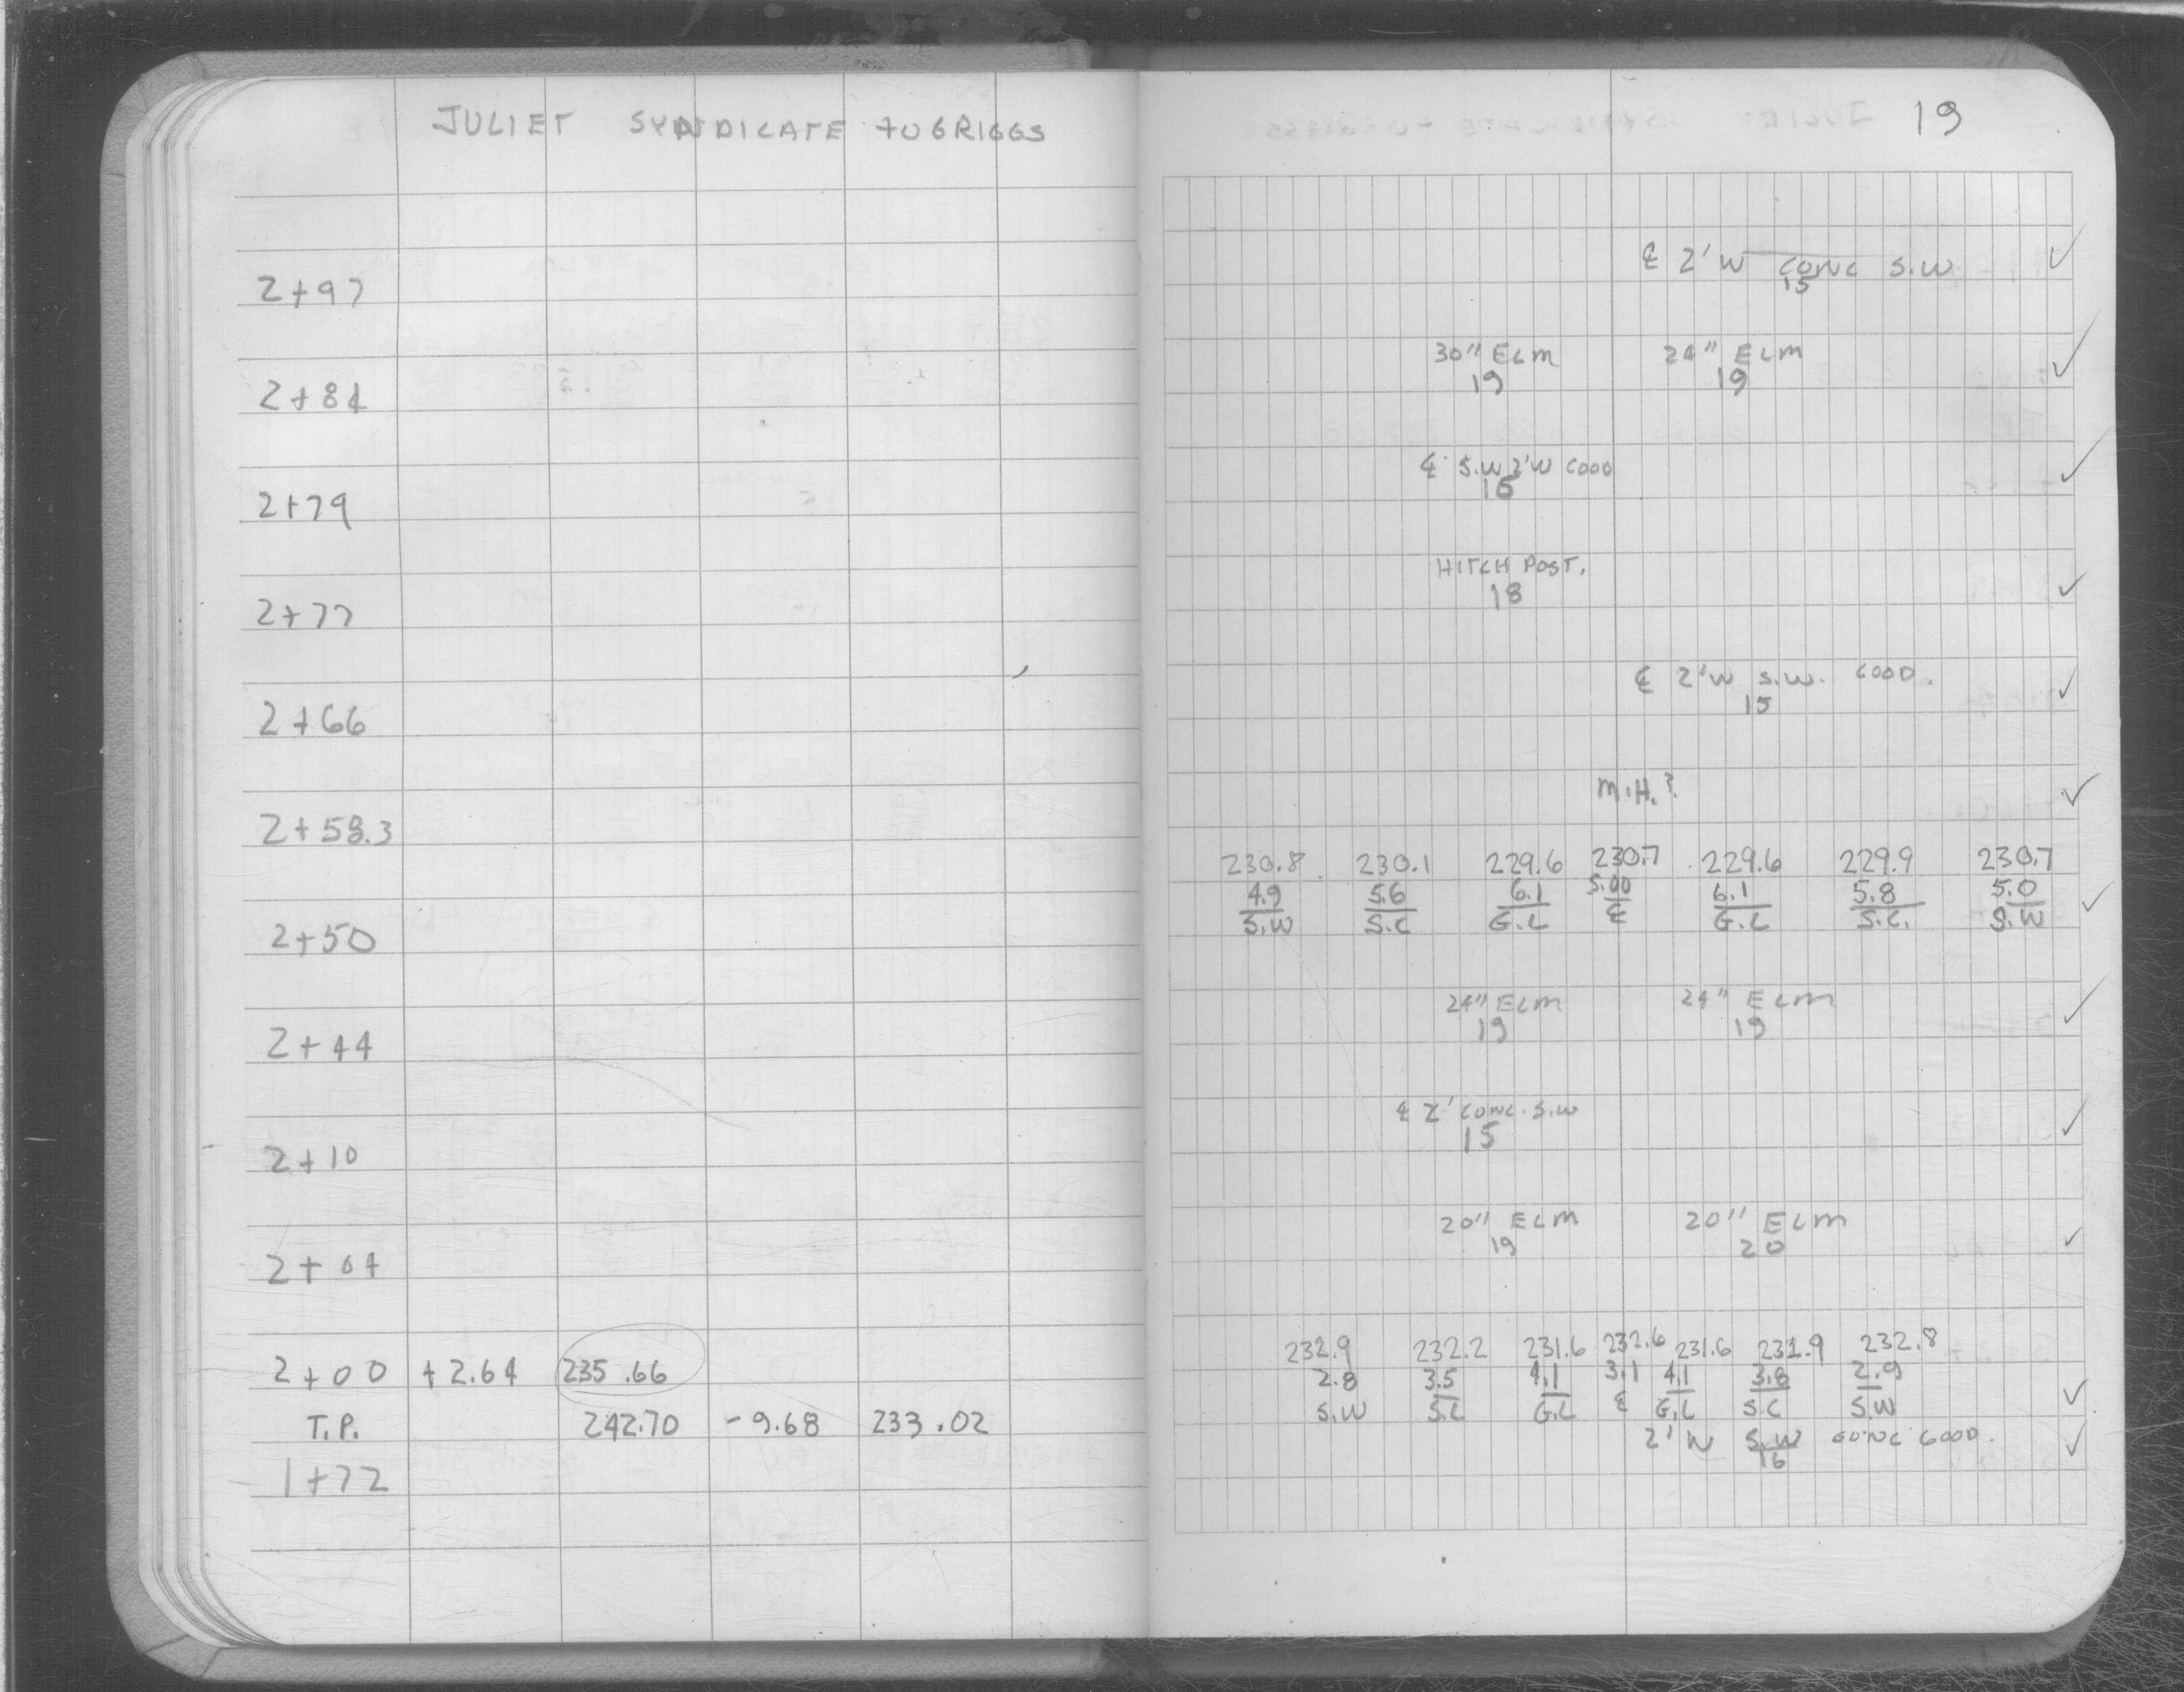 JULIET SYNDICATE TO GRIGGS
19
2+97
℄ 2'W CONC S.W
15
2+84
30" ELM 24" ELM
19 19
2+79
℄ S.W 2'W GOOD
15
2+77
HITCH POST.
18
2+66
℄ 2'W S.W. GOOD.
15
2+58.3
M.H.?
230.8 230.1 229.6 230.7 229.6 229.9 230.7
4.9 5.6 6.1 5.00 6.1 5.8 5.0
2+50 S.W S.C G.L ℄ G.L S.C. S.W
2+44
24" ELM 24" ELM
19 19
2+10
℄ 2' CONC. S.W
15
2+04
20" ELM 20" ELM
19 20
232.9 232.2 231.6 232.6 231.6 231.9 232.8
2+00 +2.64 235.66 2.8 3.5 4.1 3.1 4.1 3.8 2.9
S.W S.C G.L ℄ G.L S.C S.W
T.P. 242.70 -9.68 233.02
2'W S.W CONC GOOD.
16
1+72